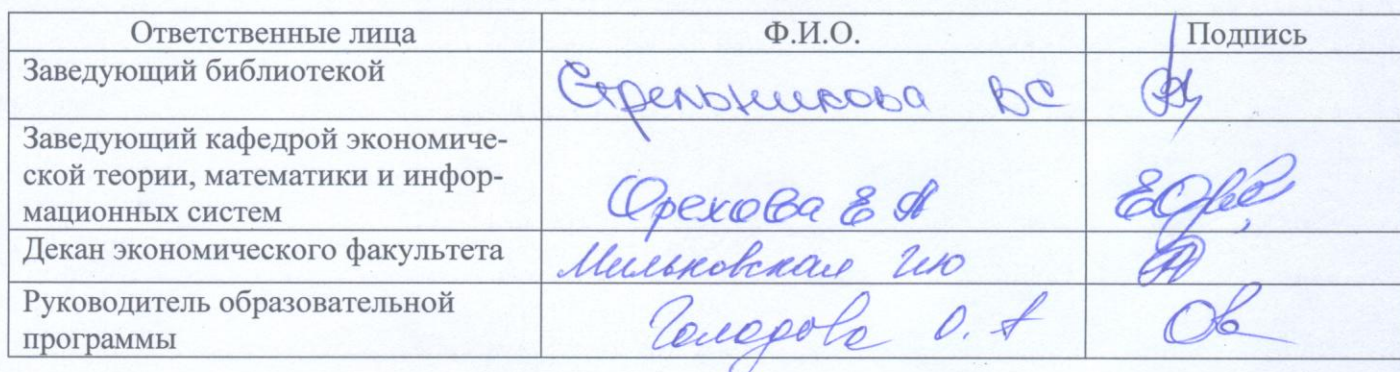 Ответственные лица Ф.И.О. Подпись
Заведующий библиотекой Стрельникова ВС
Заведующий кафедрой экономиче-
ской теории, математики и инфор-
мационных систем Орехова Е А
Декан экономического факультета Мильковская
Руководитель образовательной
программы О. А